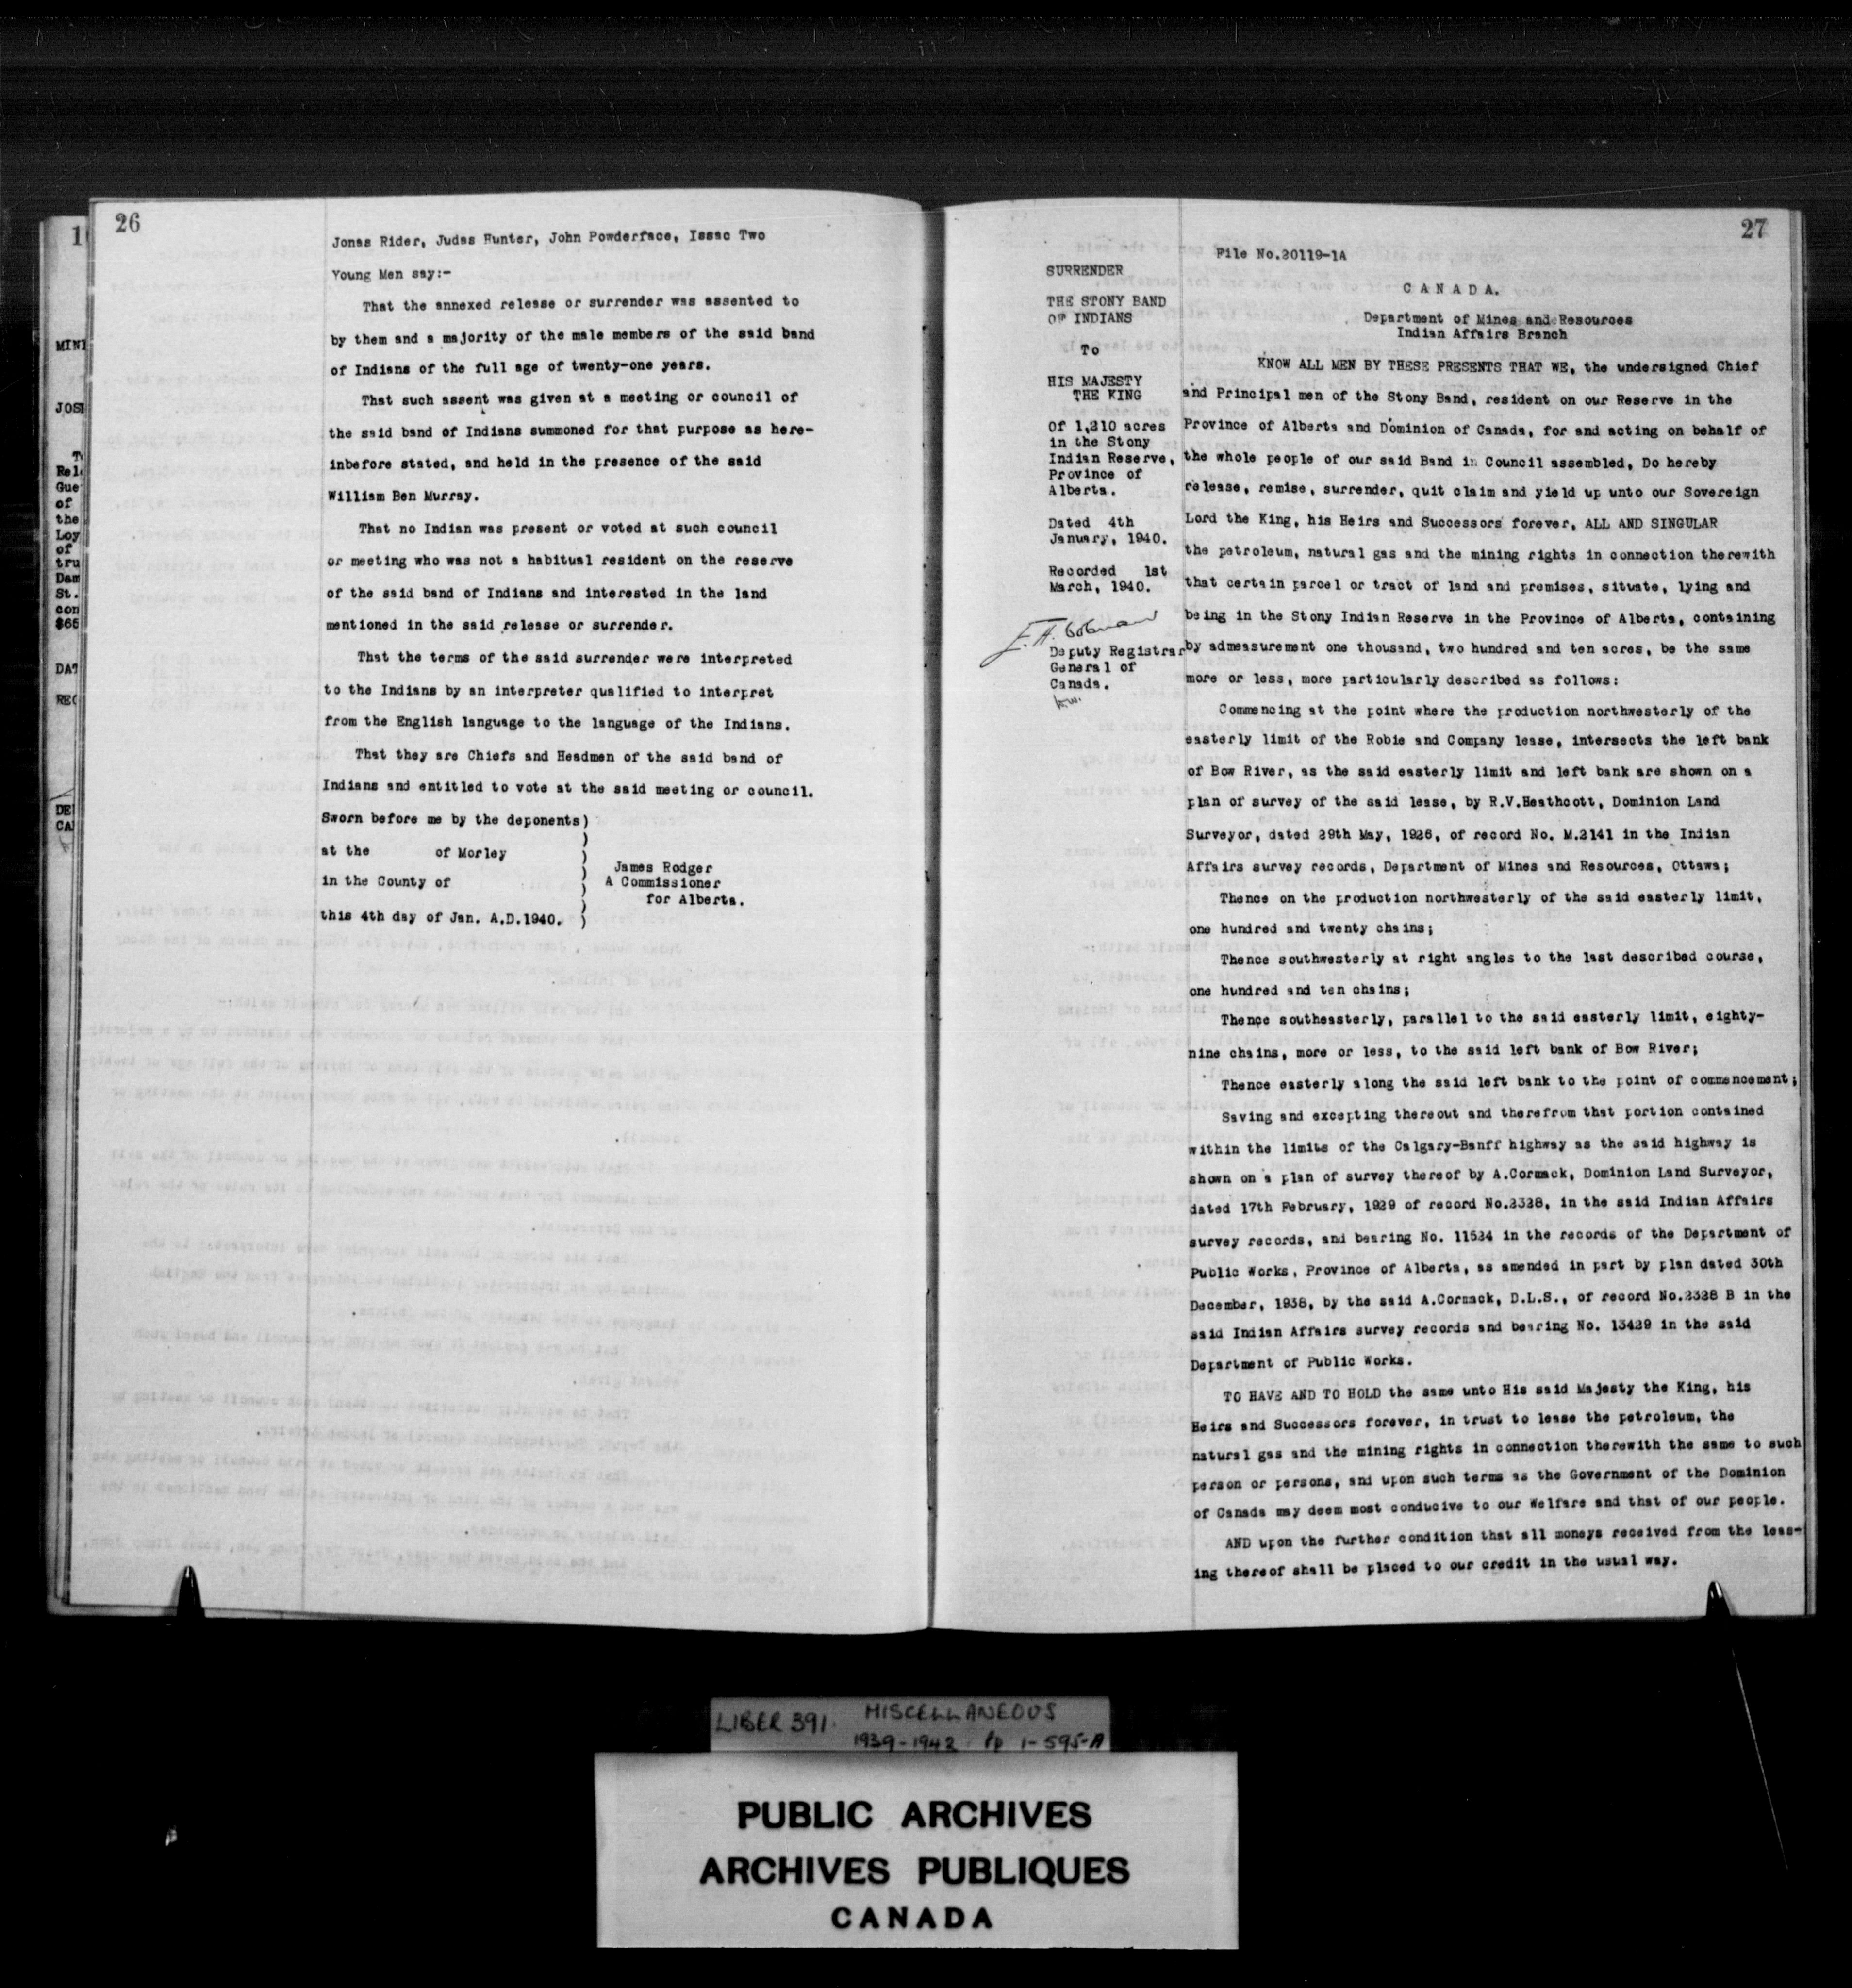 26
Jonas Rider, Judas Hunter, John Powderface, Issac Two
Young Men say:-
That the annexed release or surrender was assented to
by them and a majority of the male members of the said band
of Indians of the full age of twenty-one years.
That such assent was given at a meeting or council of
the said band of Indians summoned for that purpose as here-
inbefore stated, and held in the presence of the said
William Ben Murray.
That no Indian was present or voted at such council
or meeting who was not a habitual resident on the reserve
of the said band of Indians and interested in the land
mentioned in the said release or surrender.
That the terms of the said surrender were interpreted
to the Indians by an interpreter qualified to interpret
from the English language to the language of the Indians.
That they are Chiefs and Headmen of the said band of
Indians and entitled to vote at the said meeting or council.
Sworn before me by the deponents)
at the of Morley )
in the County of )
this 4th day of Jan. A.D.1940. )
James Rodger
A Commissioner
for Alberta.
1
MINI
JOS
Rel
Gue
of
the
Loy
of
tru
Dam
St.
con
$65
DAT
REC
DE
CA
27
SURRENDER
THE STONY BAND
OF INDIANS
To
HIS MAJESTY
THE KING
Of 1,210 acres
in the Stony
Indian Reserve,
Province of
Alberta.
Dated 4th
January, 1940.
Recorded 1st
March, 1940.
Deputy Registrar
General of
Canada.
File No.20119-1A
C A N A D A.
Department of Mines and Resources
Indian Affairs Branch
KNOW ALL MEN BY THESE PRESENTS THAT WE, the undersigned Chief
and Principal men of the Stony Band, resident on our Reserve in the
Province of Alberta and Dominion of Canada, for and acting on behalf of
the whole people of our said Band in Council assembled, Do hereby
release, remise, surrender, quit claim and yield up unto our Sovereign
Lord the King, his Heirs and Successors forever, ALL AND SINGULAR
the petroleum, natural gas and the mining rights in connection therewith
that certain parcel or tract of land and premises, situate, lying and
being in the Stony Indian Reserve in the Province of Alberta, containing
by admeasurement one thousand, two hundred and ten acres, be the same
more or less, more particularly described as follows:
Commencing at the point where the production northwesterly of the
easterly limit of the Robie and Company lease, intersects the left bank
of Bow River, as the said easterly limit and left bank are shown on a
plan of survey of the said lease, by R.V.Heathcott, Dominion Land
Surveyor, dated 29th May, 1926, of record No. M.2141 in the Indian
Affairs survey records, Department of Mines and Resources, Ottawa;
Thence on the production northwesterly of the said easterly limit,
one hundred and twenty chains;
Thence southwesterly at right angles to the last described course,
one hundred and ten chains;
Thence southeasterly, parallel to the said easterly limit, eighty-
nine chains, more or less, to the said left bank of Bow River;
Thence easterly along the said left bank to the point of commencement;
Saving and excepting thereout and therefrom that portion contained
within the limits of the Calgary-Banff highway as the said highway is
shown on a plan of survey thereof by A.Cormack, Dominion Land Surveyor,
dated 17th February, 1929 of record No.2328, in the said Indian Affairs
survey records, and bearing No. 11524 in the records of the Department of
Public Works, Province of Alberta, as amended in part by plan dated 30th
December, 1938, by the said A.Cormack, D.L.S., of record No.2328 B in the
said Indian Affairs survey records and bearing No. 13429 in the said
Department of Public Works.
TO HAVE AND TO HOLD the same unto His said Majesty the King, his
Heirs and Successors forever, in trust to lease the petroleum, the
natural gas and the mining rights in connection therewith the same to such
person or persons, and upon such terms as the Government of the Dominion
of Canada may deem most conducive to our Welfare and that of our people.
AND upon the further condition that all moneys received from the leas-
ing thereof shall be placed to our credit in the usual way.
LIBER 391. MISCELLANEOUS
1939-1942 Pp 1-595-A
PUBLIC ARCHIVES
ARCHIVES PUBLIQUES
CANADA